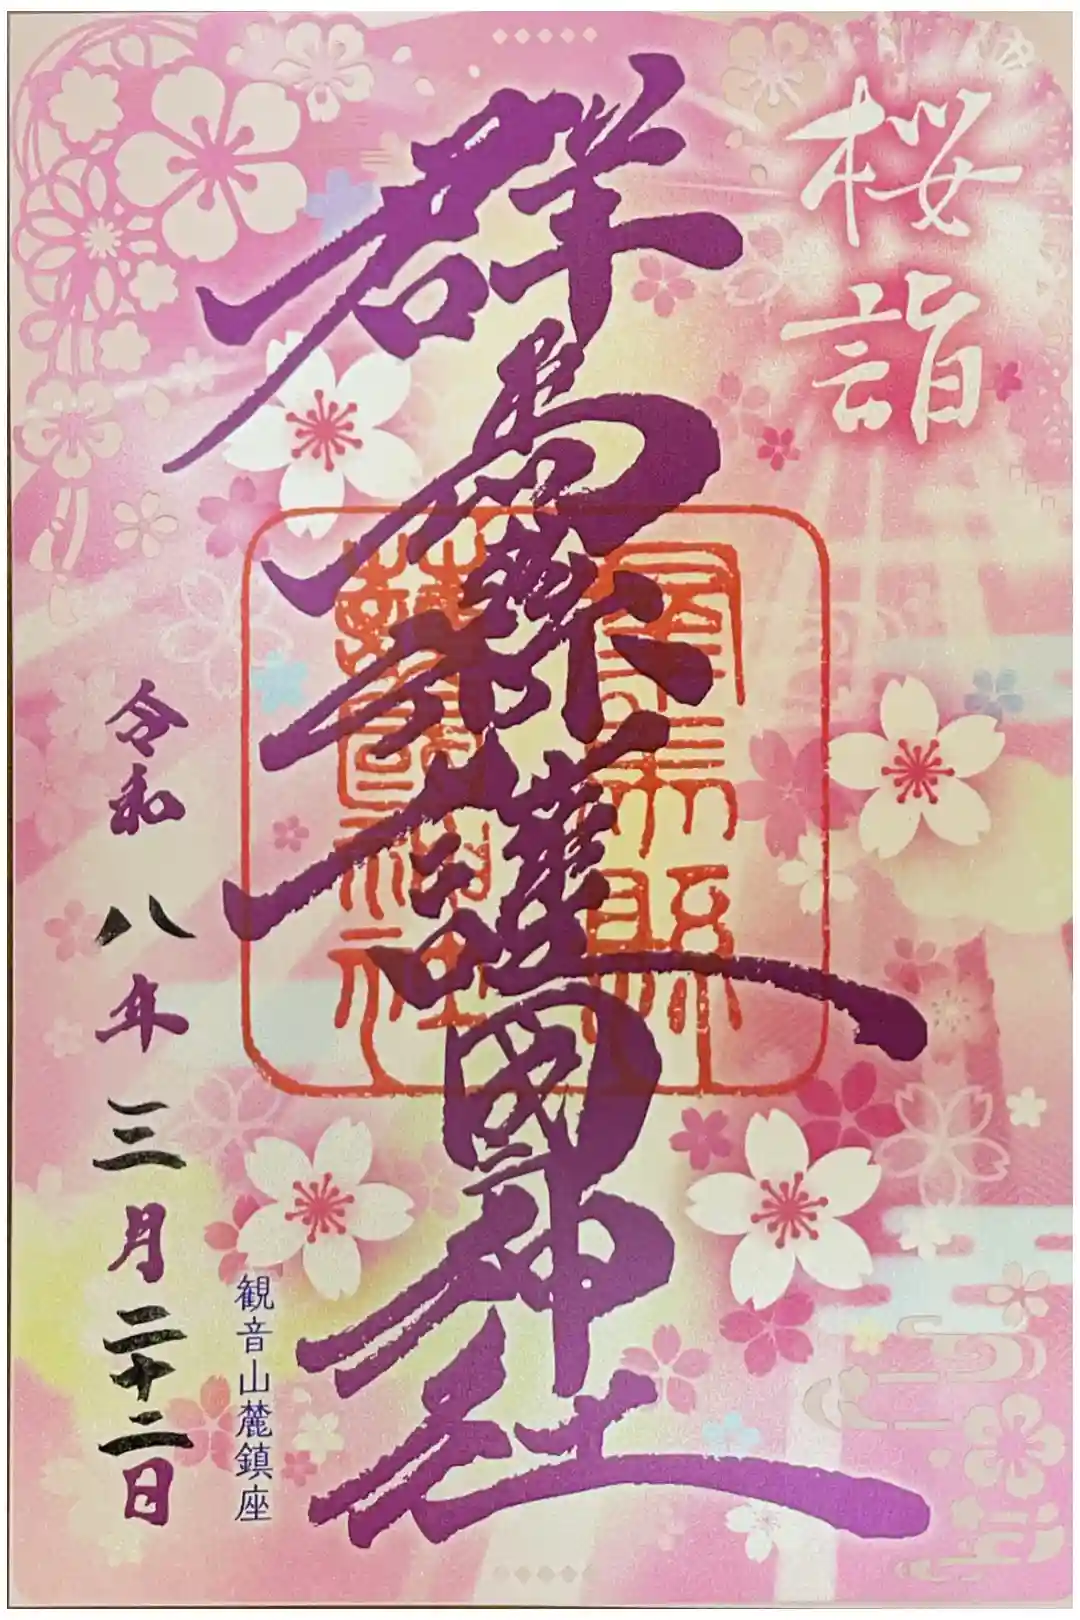 桜詣
群馬縣護國神社
群馬縣護國神社
観音山麓鎮座
令和八年三月二十二日